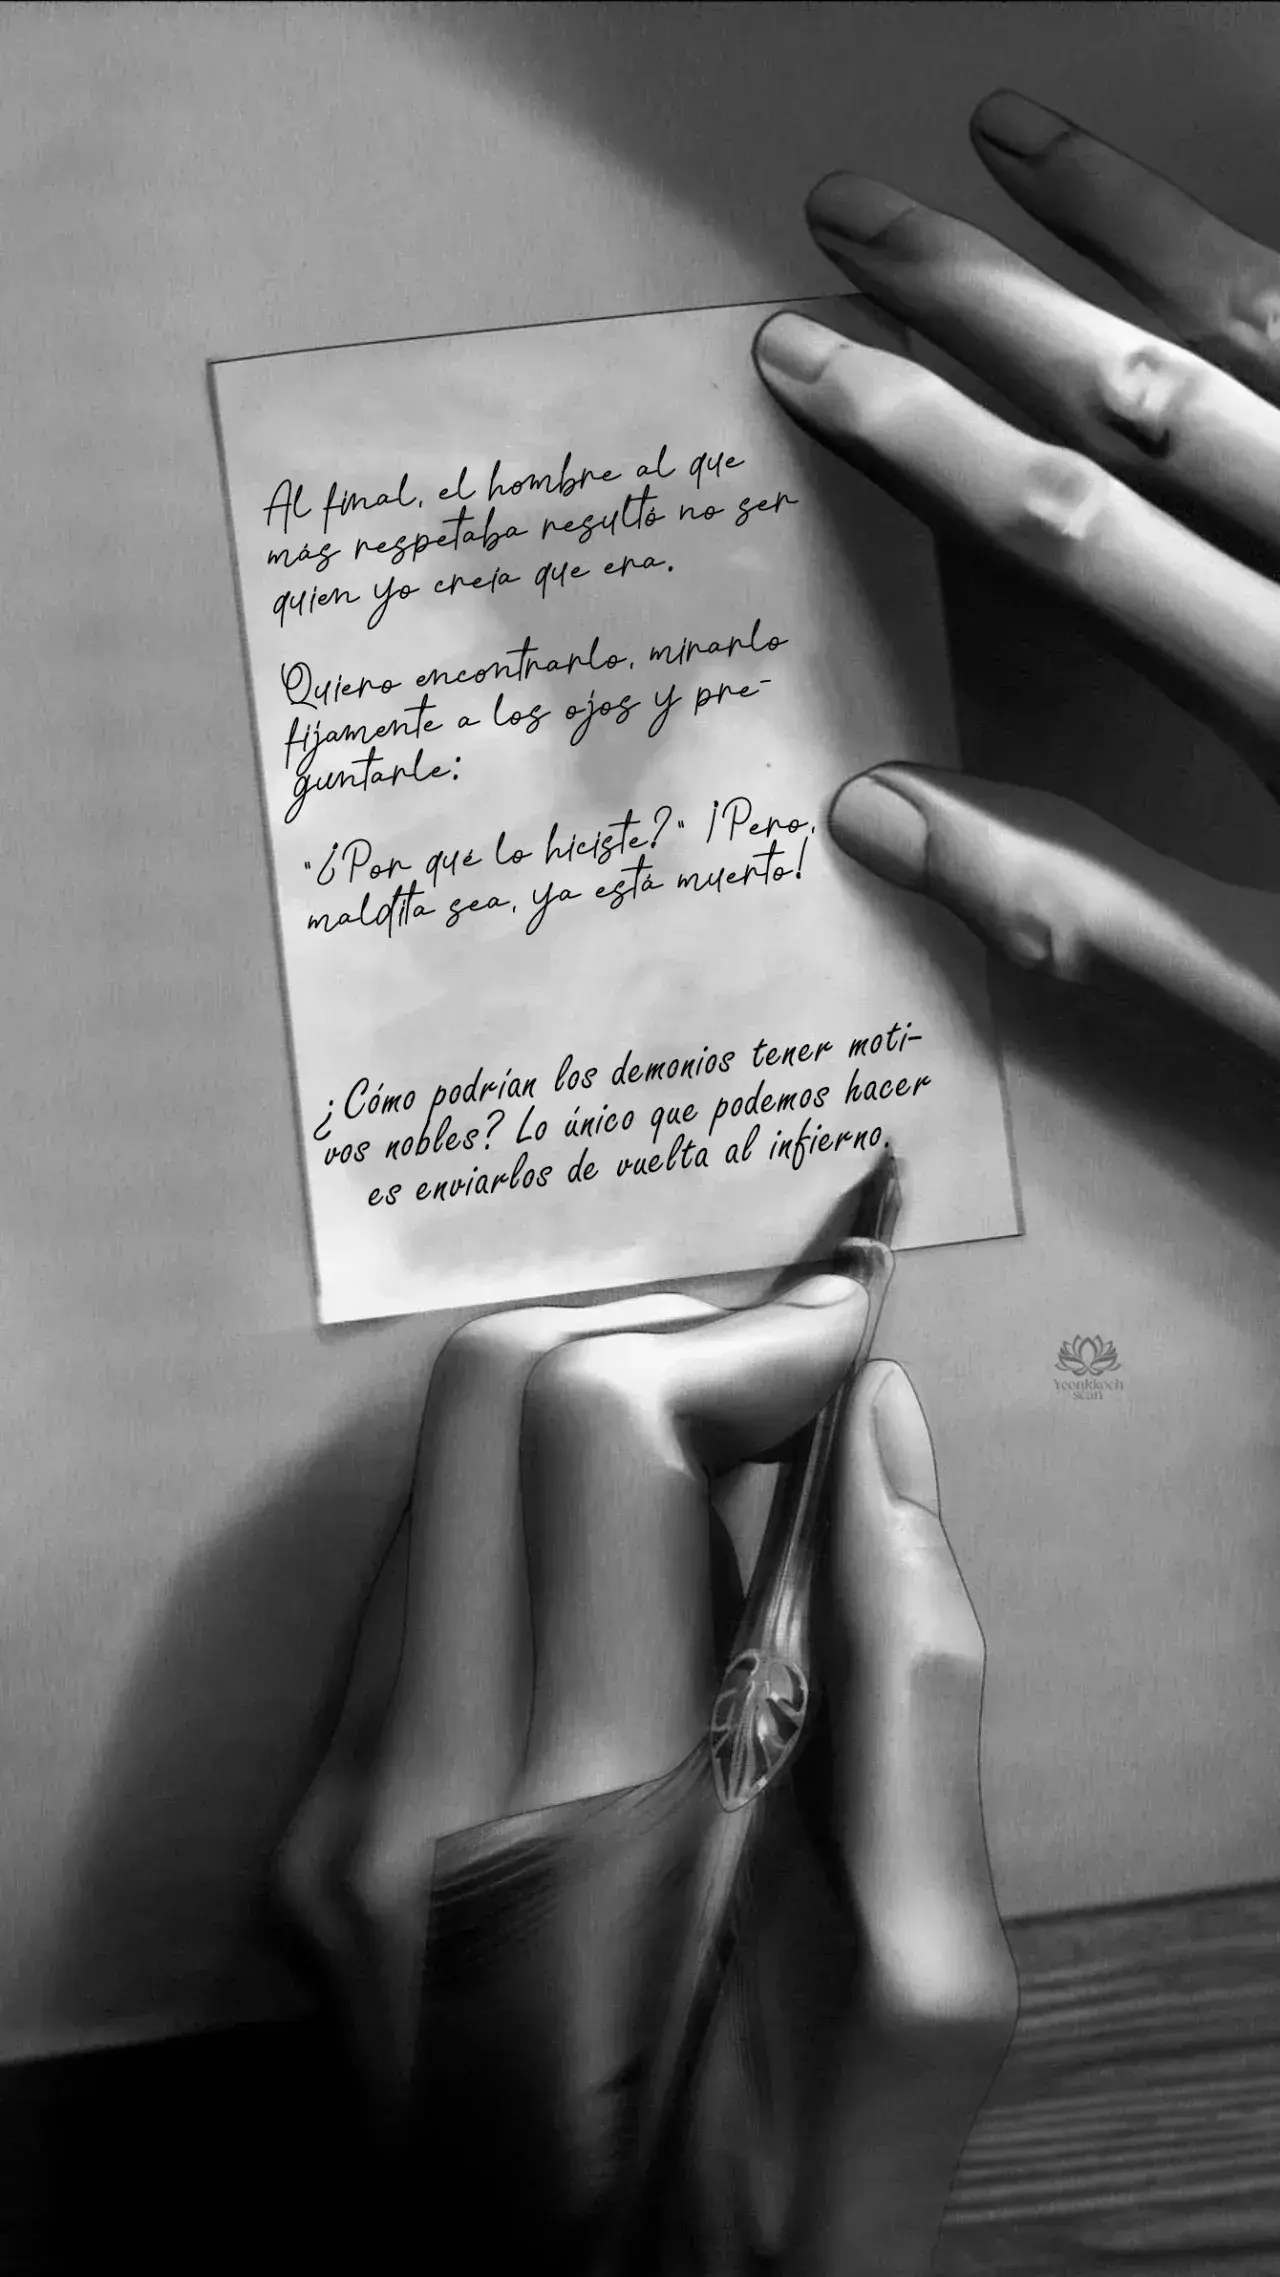 Al final, el hombre al que
más respetaba resultó no ser
quien yo creía que era.
Quiero encontrarlo, mirarlo
fijamente a los ojos y pre-
guntarle:
"¿Por qué lo hiciste?" ¡Pero,
maldita sea, ya está muerto!
¿Cómo podrían los demonios tener moti-
vos nobles? Lo único que podemos hacer
es enviarlos de vuelta al infierno.
Yeonkkoch
scan